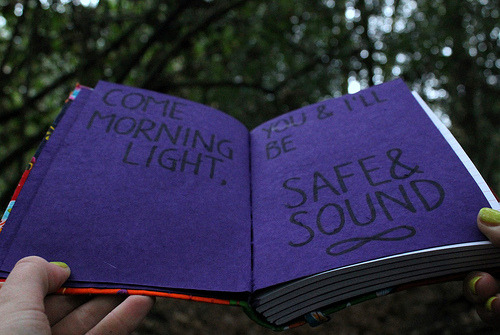 COME
MORNING
LIGHT,
YOU & I'LL
BE
SAFE &
SOUND